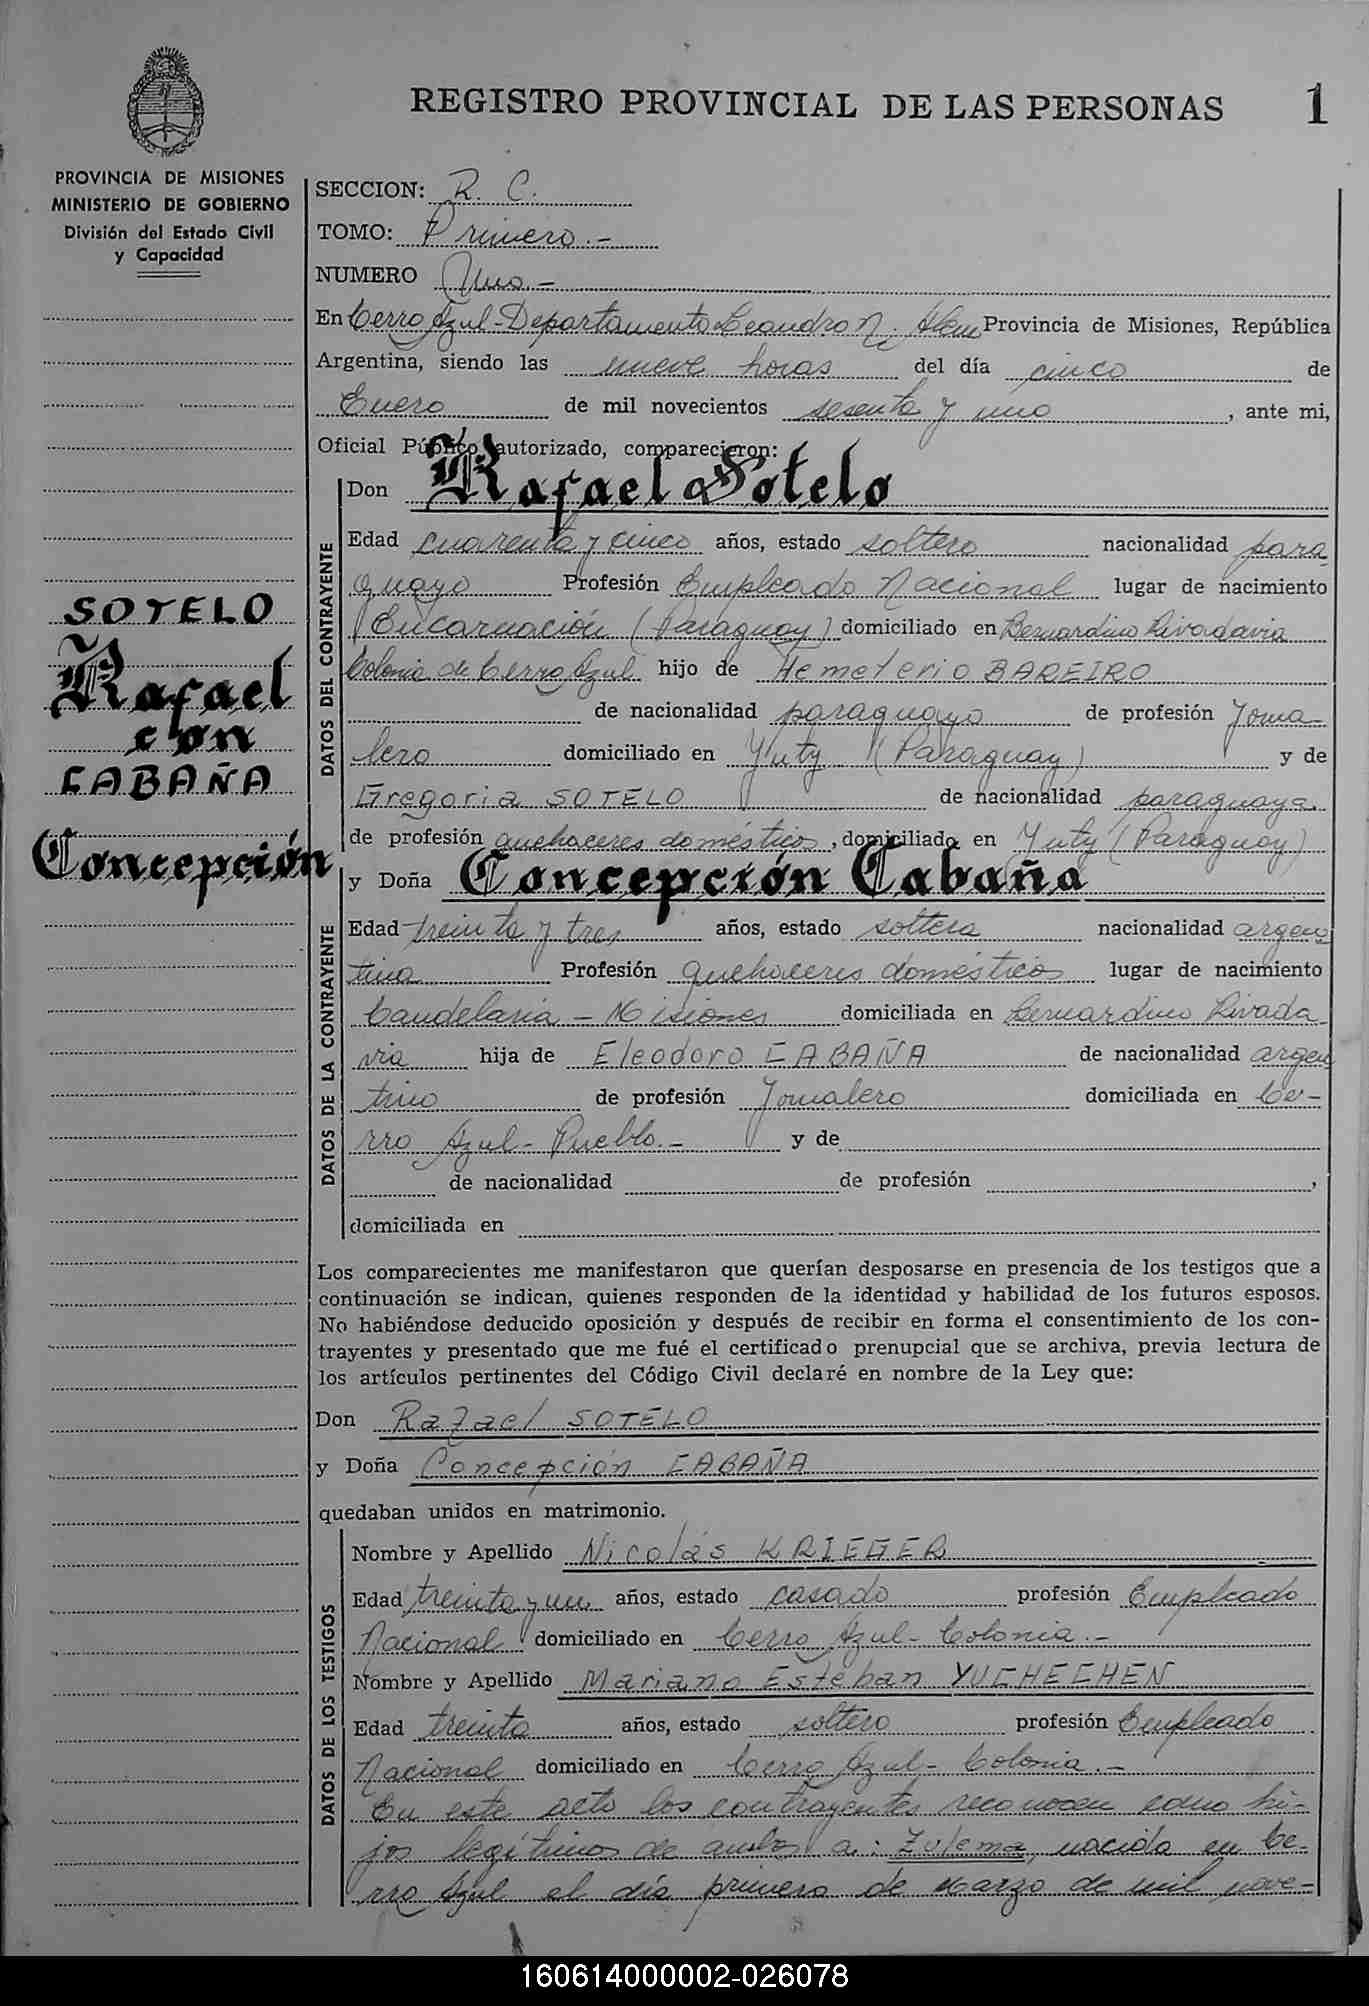 REGISTRO PROVINCIAL DE LAS PERSONAS 1
PROVINCIA DE MISIONES
MINISTERIO DE GOBIERNO
División del Estado Civil
y Capacidad
SOTELO
Rafael
con
CABAÑA
Concepción
SECCION: R. C.
TOMO: Primero.-
NUMERO Uno.-
En Cerro Azul-Departamento Leandro N. Alem Provincia de Misiones, República
Argentina, siendo las nueve horas del día cinco de
Enero de mil novecientos sesenta y uno, ante mi,
Oficial Público autorizado, comparecieron:
DATOS DEL CONTRAYENTE
Don Rafael Sotelo
Edad cuarenta y cinco años, estado soltero nacionalidad para
guayo Profesión Empleado Nacional lugar de nacimiento
Encarnación (Paraguay) domiciliado en Bernardino Rivadavia
Colonia de Cerro Azul hijo de Hemeterio BAREIRO
de nacionalidad paraguayo de profesión Jorna-
lero domiciliado en Yuty (Paraguay) y de
Gregoria SOTELO de nacionalidad paraguaya
de profesión quehaceres domésticos, domiciliada en Yuty (Paraguay)
DATOS DE LA CONTRAYENTE
y Doña Concepción Cabaña
Edad treinta y tres años, estado soltera nacionalidad argen
tina Profesión quehaceres domésticos lugar de nacimiento
Candelaria - Misiones domiciliada en Bernardino Rivada
via hija de Eleodoro CABAÑA de nacionalidad argen
tino de profesión Jornalero domiciliada en Ce-
rro Azul- Pueblo.- y de
de nacionalidad de profesión ,
domiciliada en
Los comparecientes me manifestaron que querían desposarse en presencia de los testigos que a
continuación se indican, quienes responden de la identidad y habilidad de los futuros esposos.
No habiéndose deducido oposición y después de recibir en forma el consentimiento de los con-
trayentes y presentado que me fué el certificado prenupcial que se archiva, previa lectura de
los artículos pertinentes del Código Civil declaré en nombre de la Ley que:
Don Rafael SOTELO
y Doña Concepción CABAÑA
quedaban unidos en matrimonio.
DATOS DE LOS TESTIGOS
Nombre y Apellido Nicolás KRIEGER
Edad treinta y un años, estado casado profesión Empleado
Nacional domiciliado en Cerro Azul- Colonia.-
Nombre y Apellido Mariano Esteban YUCHECHEN
Edad treinta años, estado soltero profesión Empleado
Nacional domiciliado en Cerro Azul- Colonia.-
En este acto los contrayentes reconocen como hi-
jos legítimos de ambos a: Zulema, nacida en Ce-
rro Azul el día primero de Marzo de mil nove-
160614000002-026078